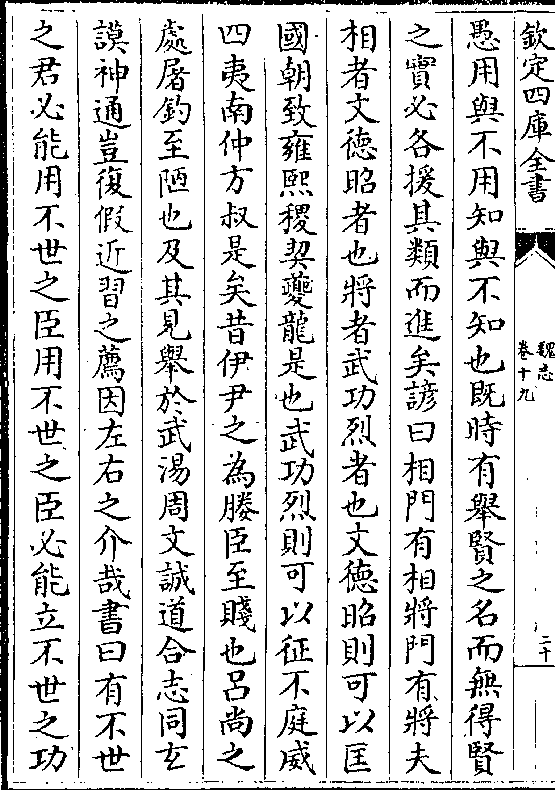 欽定四庫全書
魏志
卷十九
二十
愚用與不用知與不知也既時有舉賢之名而無得賢
之實必各援其類而進矣諺曰相門有相將門有將夫
相者文德昭者也將者武功烈者也文德昭則可以匡
國朝致雍熙稷契夔龍是也武功烈則可以征不庭威
四夷南仲方叔是矣昔伊尹之為媵臣至賤也呂尚之
處屠釣至陋也及其見舉於武湯周文誠道合志同玄
謨神通豈復假近習之薦因左右之介哉書曰有不世
之君必能用不世之臣用不世之臣必能立不世之功